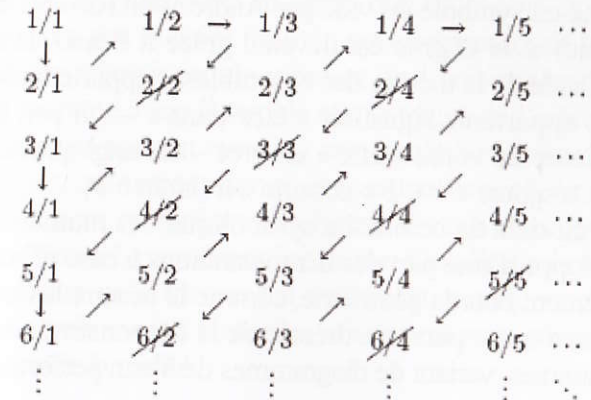 1/1 1/2 → 1/3 1/4 → 1/5
↓ ↗ ↙ ↗ ↙
2/1 2/2 2/3 2/4 2/5 ⋯
↙ ↗ ↙ ↗
3/1 3/2 3/3 3/4 3/5 ⋯
↓ ↗ ↙ ↗ ↙
4/1 4/2 4/3 4/4 4/5 ⋯
↙ ↗ ↙ ↗
5/1 5/2 5/3 5/4 5/5 ⋯
↓ ↗ ↙ ↗ ↙
6/1 6/2 6/3 6/4 6/5 ⋯
⋮ ⋮ ⋮ ⋮ ⋮ ⋱